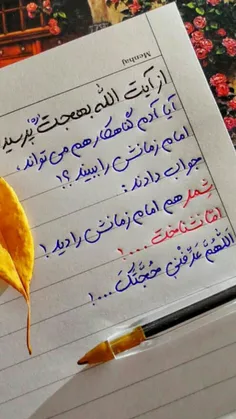 Menhaj
از آیت الله بهجت پرسید
آیا آدم گناهکار هم می تواند،
امام زمانش را ببیند ؟!
جواب دادند :
شمر هم امام زمانش را دید !
اما نشناخت ....!
اللهُمَّ عَرِّفْنی حُجَّتَکَ ...!